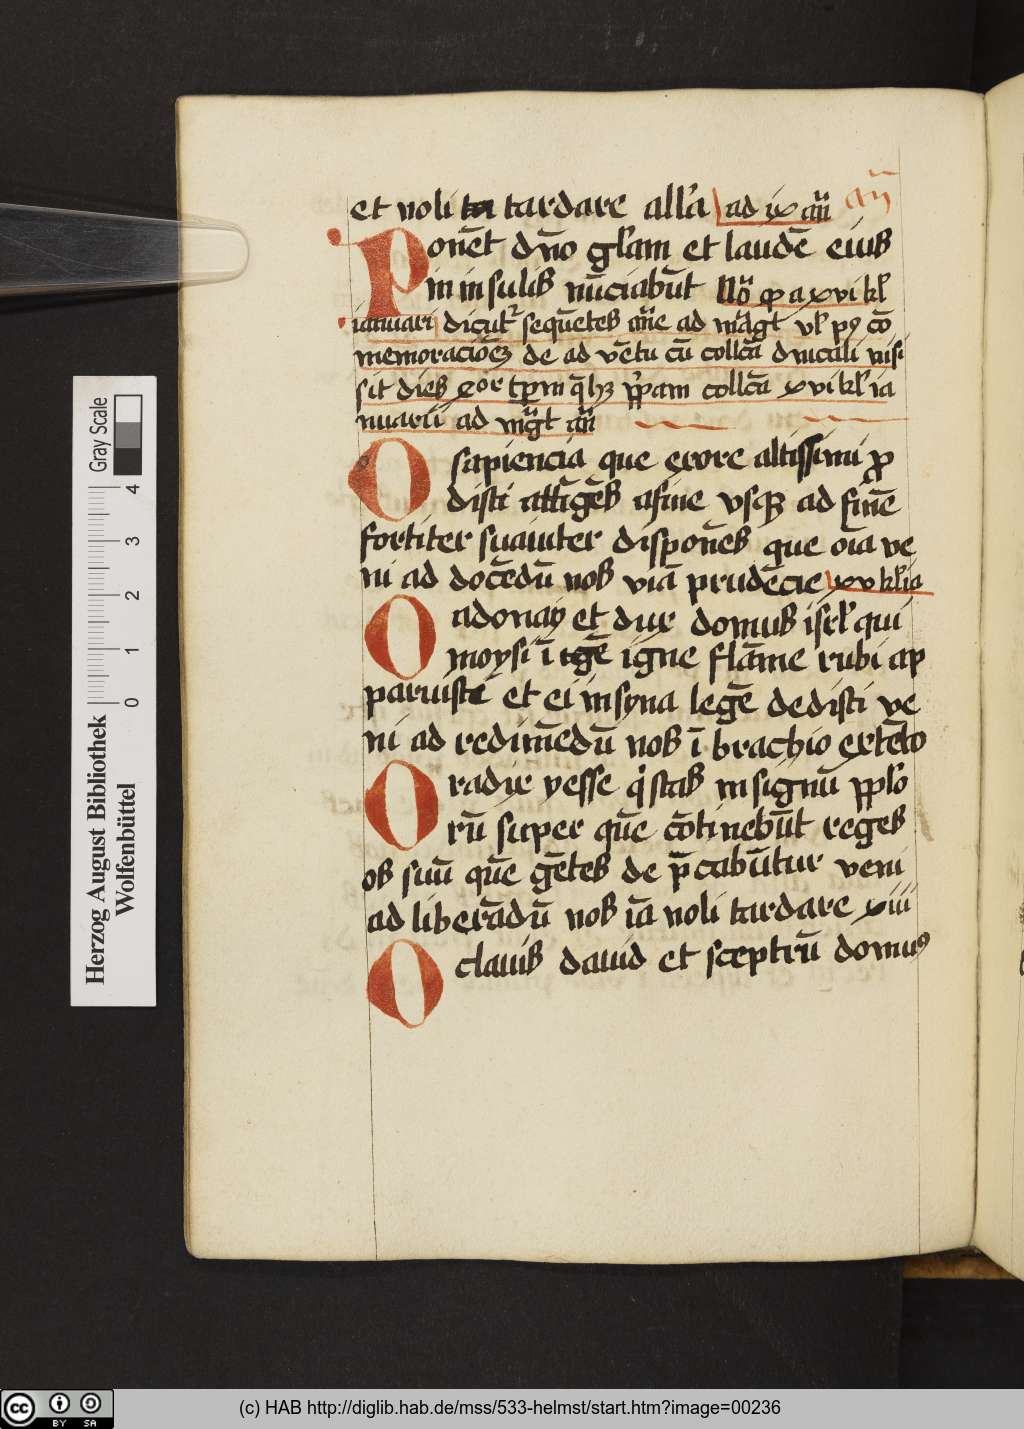 et noli tardare all'a ad ix añ añ
Ponēt dño gl'am et laudē eius
in insulis nūciabūt No q a xvi kl'
ianuarij dicūt' seqūetes añe ad māgt vl' p9 cō
memoracōēz de ad vētu cū collcā dnicali nisi
sit dies xor tp̄m
collcā xvi kl' ia
nuarii ad māgt añ
O sapiencia que exore altissimi p
disti attīgēs afine vsqz ad finē
fortiter suauiter disponēs que oīa ve
ni ad docēdū nos viā prudēcie xv kl' ia
O adonay et dux domus isrl' qui
moysi ī igne flāme rubi ap
paruisti et ei in syna legē dedisti ve
ni ad redimēdū nos ī brachio extēto
O radix yesse q stas in signū ppl'o
rū super quē cōtinebūt reges
os suū quē gētes de p̄cabūtur veni
ad liberādū nos iā noli tardare xiii
O clauis dauid et sceptrū domus
Herzog August Bibliothek
Wolfenbüttel
Gray Scale
0 1 2 3 4
cc BY SA
(c) HAB http://diglib.hab.de/mss/533-helmst/start.htm?image=00236